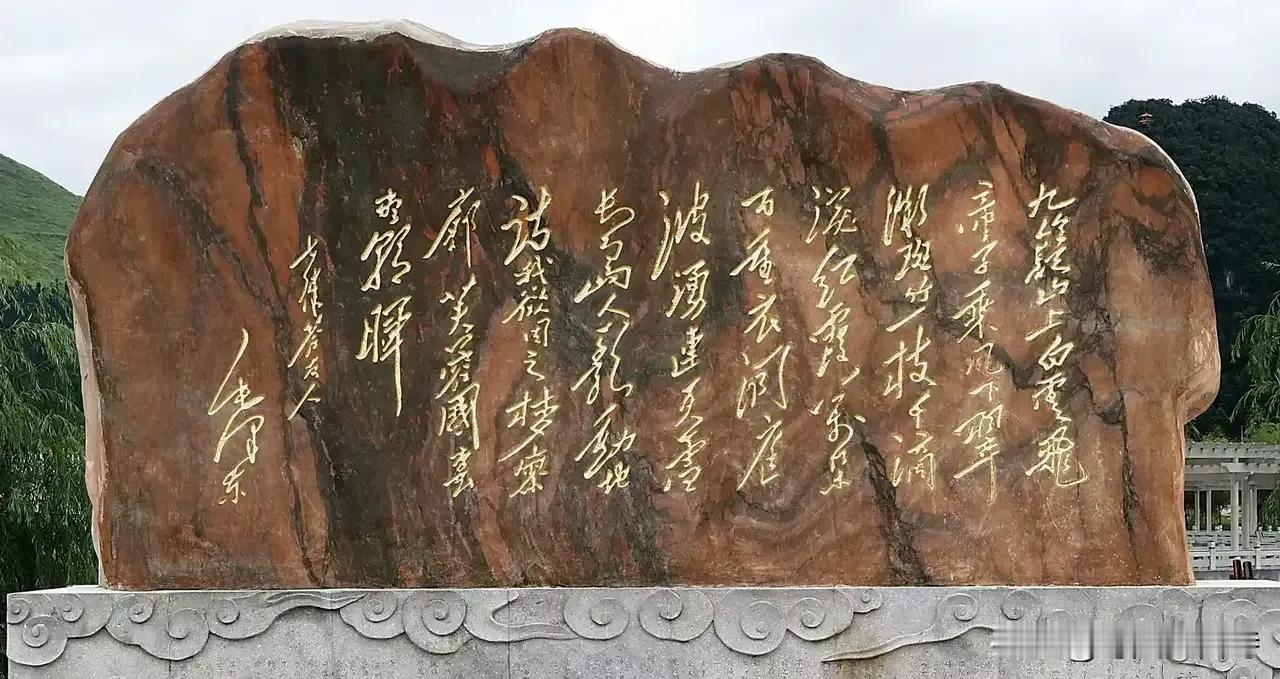 九嶷山上白雲飛
帝子乘風下翠
微斑竹一枝千滴
淚紅霞萬朵
百重衣洞庭
波湧連天雪
長島人歌動地
詩我欲因之夢寥
廓芙蓉國裏
盡朝暉
七律答友人
毛澤東